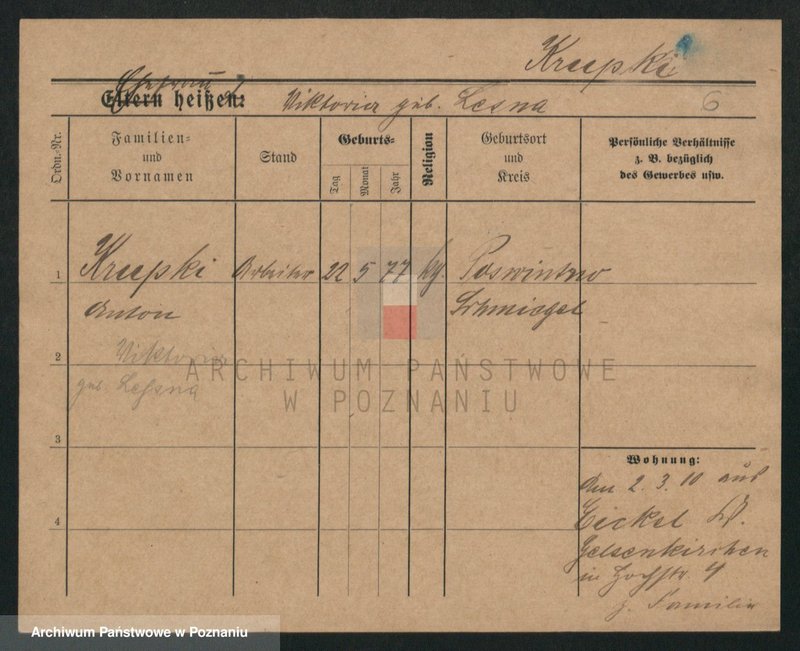 Krzepki
6
Ehefrau
Eltern heißen: Viktoria geb. Lesna
Ordn.-Nr.
Familien-
und
Vornamen
Stand
Geburts-
Tag
Monat
Jahr
Religion
Geburtsort
und
Kreis
Persönliche Verhältnisse
z. B. bezüglich
des Gewerbes usw.
1 Krzepki Arbeiter 22 5 77
Anton Schmiegel
2 Viktoria
geb. Lesna
3
4
Wohnung:
Am 2. 3. 10 aus
Eickel
Gelsenkirchen
in Hochstr. 4
z. Familie
ARCHIWUM PAŃSTWOWE
W POZNANIU
Archiwum Państwowe w Poznaniu